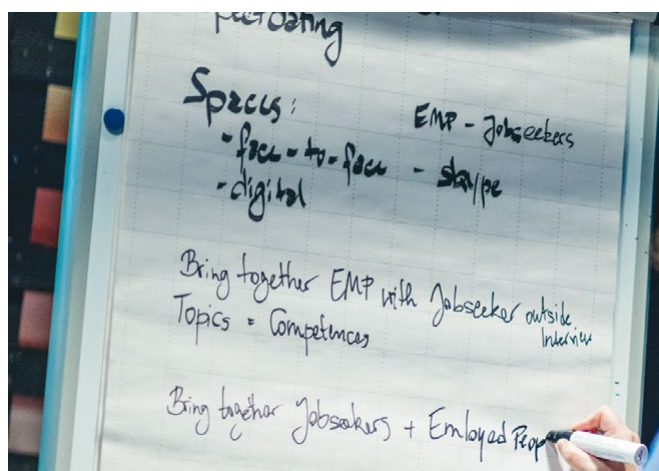 Spaces:
EMP - Jobseekers
- face-to-face - skype
- digital
Bring together EMP with Jobseeker outside
Interview
Topics = Competences
Bring together Jobseekers + Employed